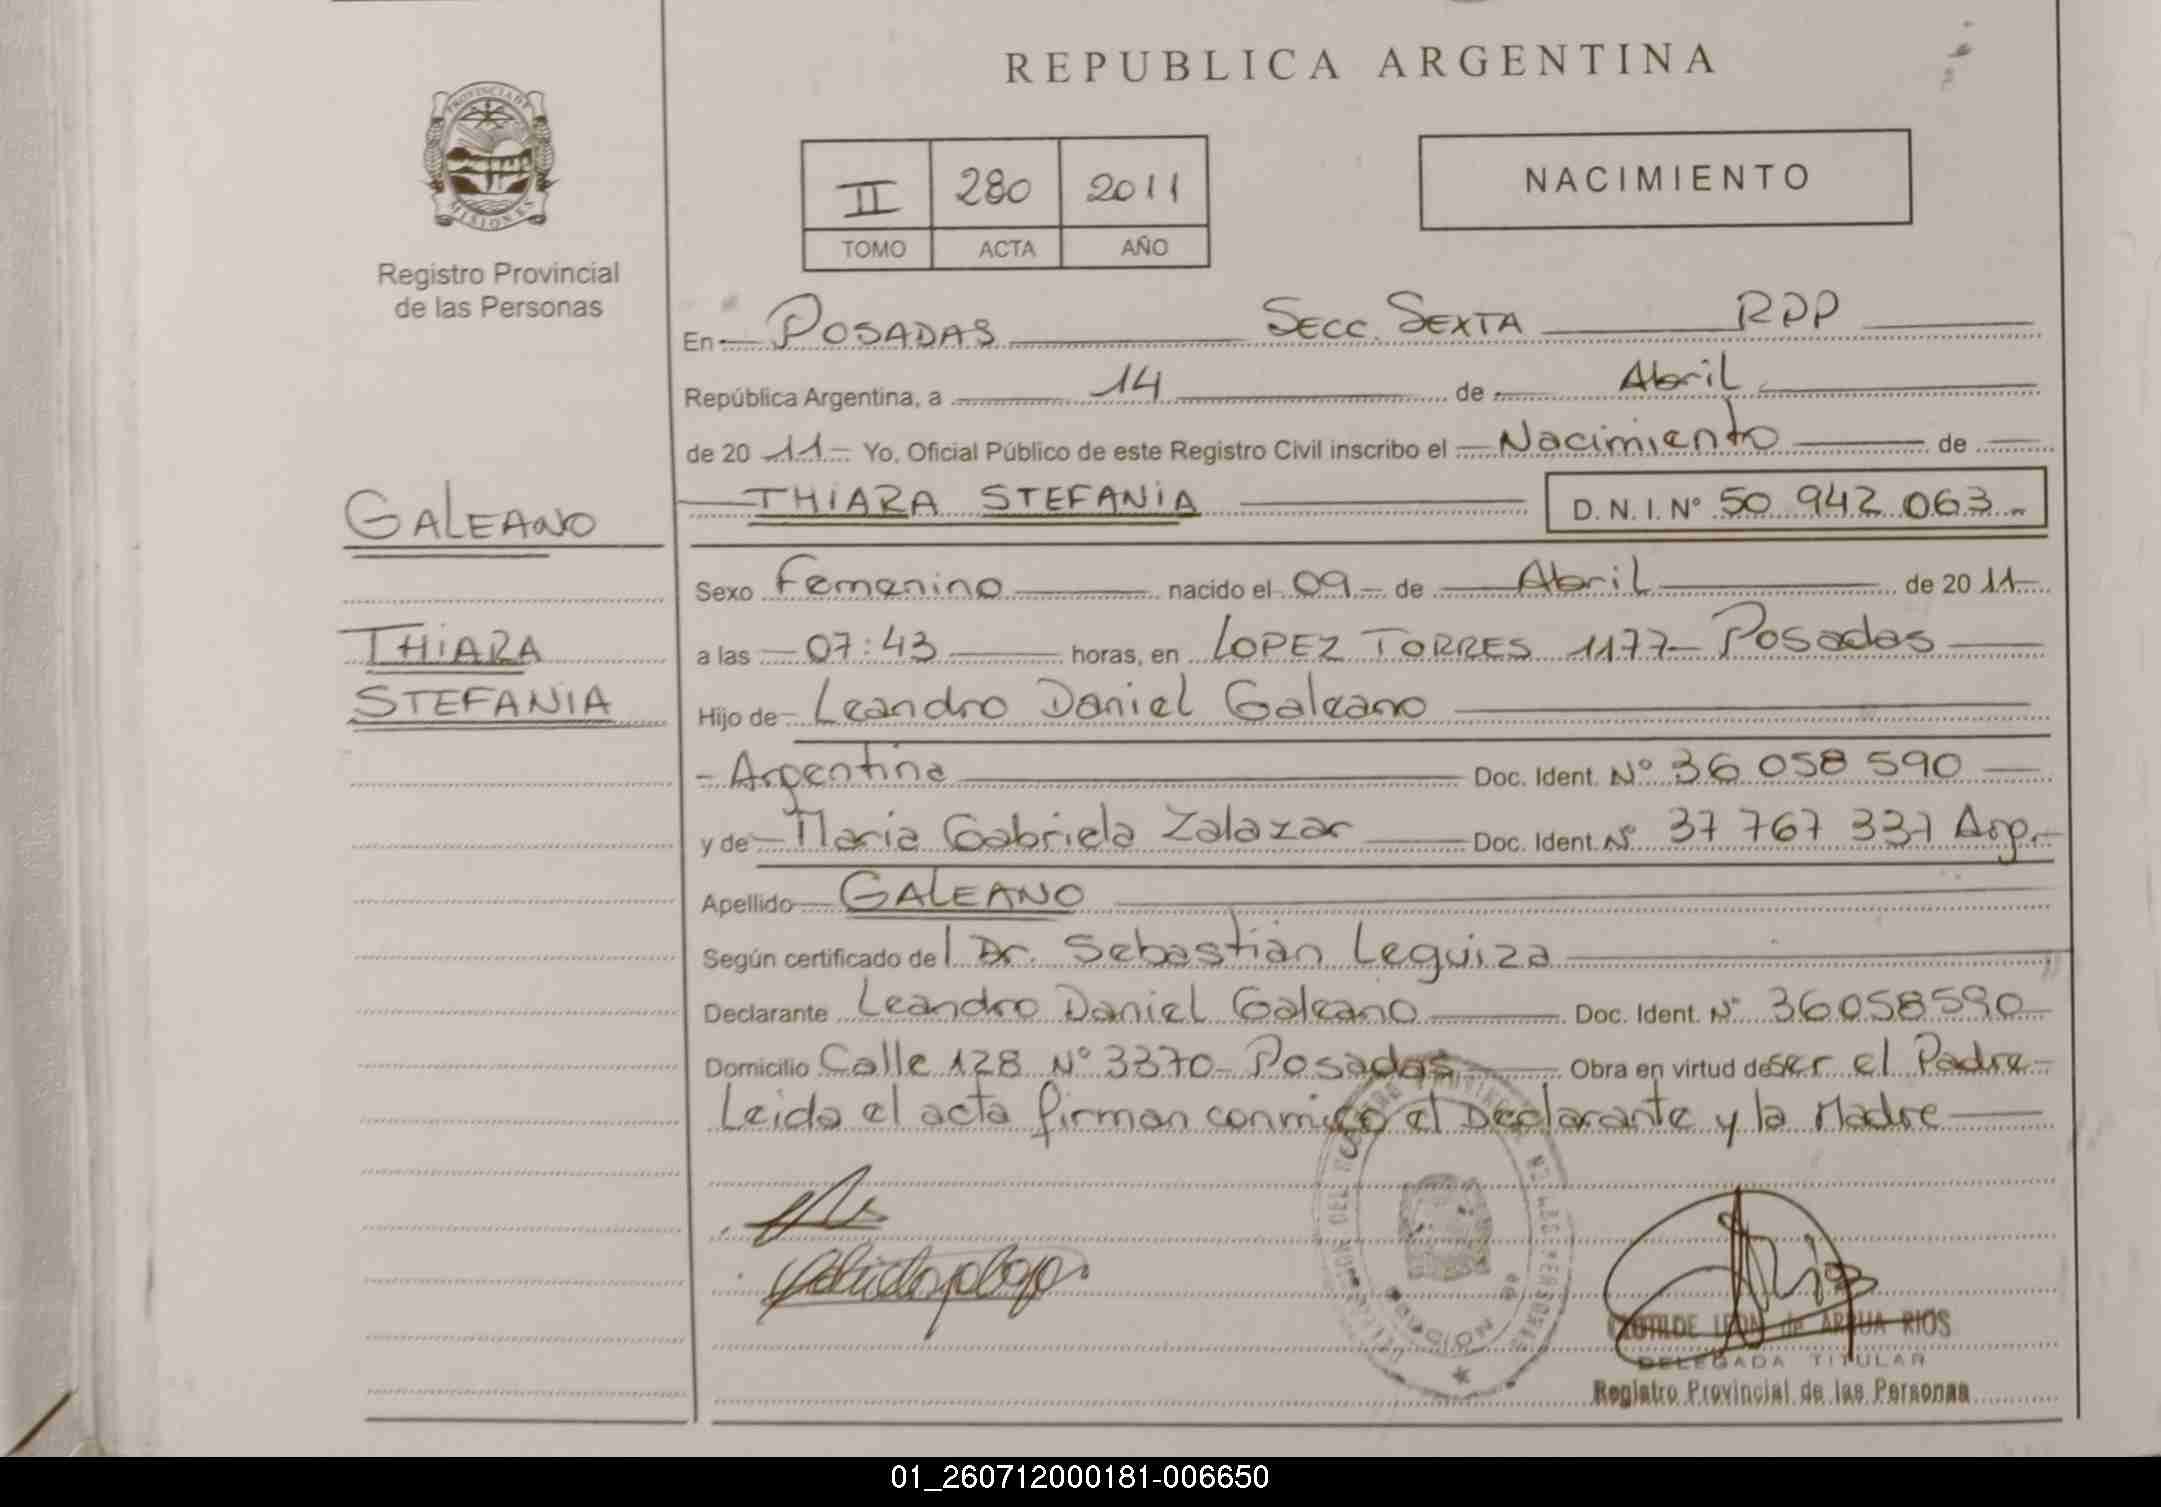 REPUBLICA ARGENTINA
PROVINCIA DE
MISIONES
Registro Provincial
de las Personas
II 280 2011
TOMO ACTA AÑO
NACIMIENTO
En POSADAS SECC. SEXTA RPP
República Argentina, a 14 de Abril
de 20 11 Yo, Oficial Público de este Registro Civil inscribo el Nacimiento de
THIARA STEFANIA D. N. I. Nº 50 942 063
GALEANO
THIARA
STEFANIA
Sexo Femenino nacido el 09 de Abril de 20 11
a las 07:43 horas, en LOPEZ TORRES 1177- Posadas
Hijo de Leandro Daniel Galeano
- Argentina Doc. Ident. Nº 36 058 590
y de Maria Gabriela Zalazar Doc. Ident. Nº 37 767 337 Arg.
Apellido GALEANO
Según certificado del Dr. Sebastián Leguiza
Declarante Leandro Daniel Galeano Doc. Ident. Nº 36058590
Domicilio Calle 128 Nº 3370- Posadas Obra en virtud de ser el Padre
Leida el acta firman conmigo el Declarante y la Madre
LEON de ARRUA RIOS
DELEGADA TITULAR
Registro Provincial de las Personas
01_260712000181-006650